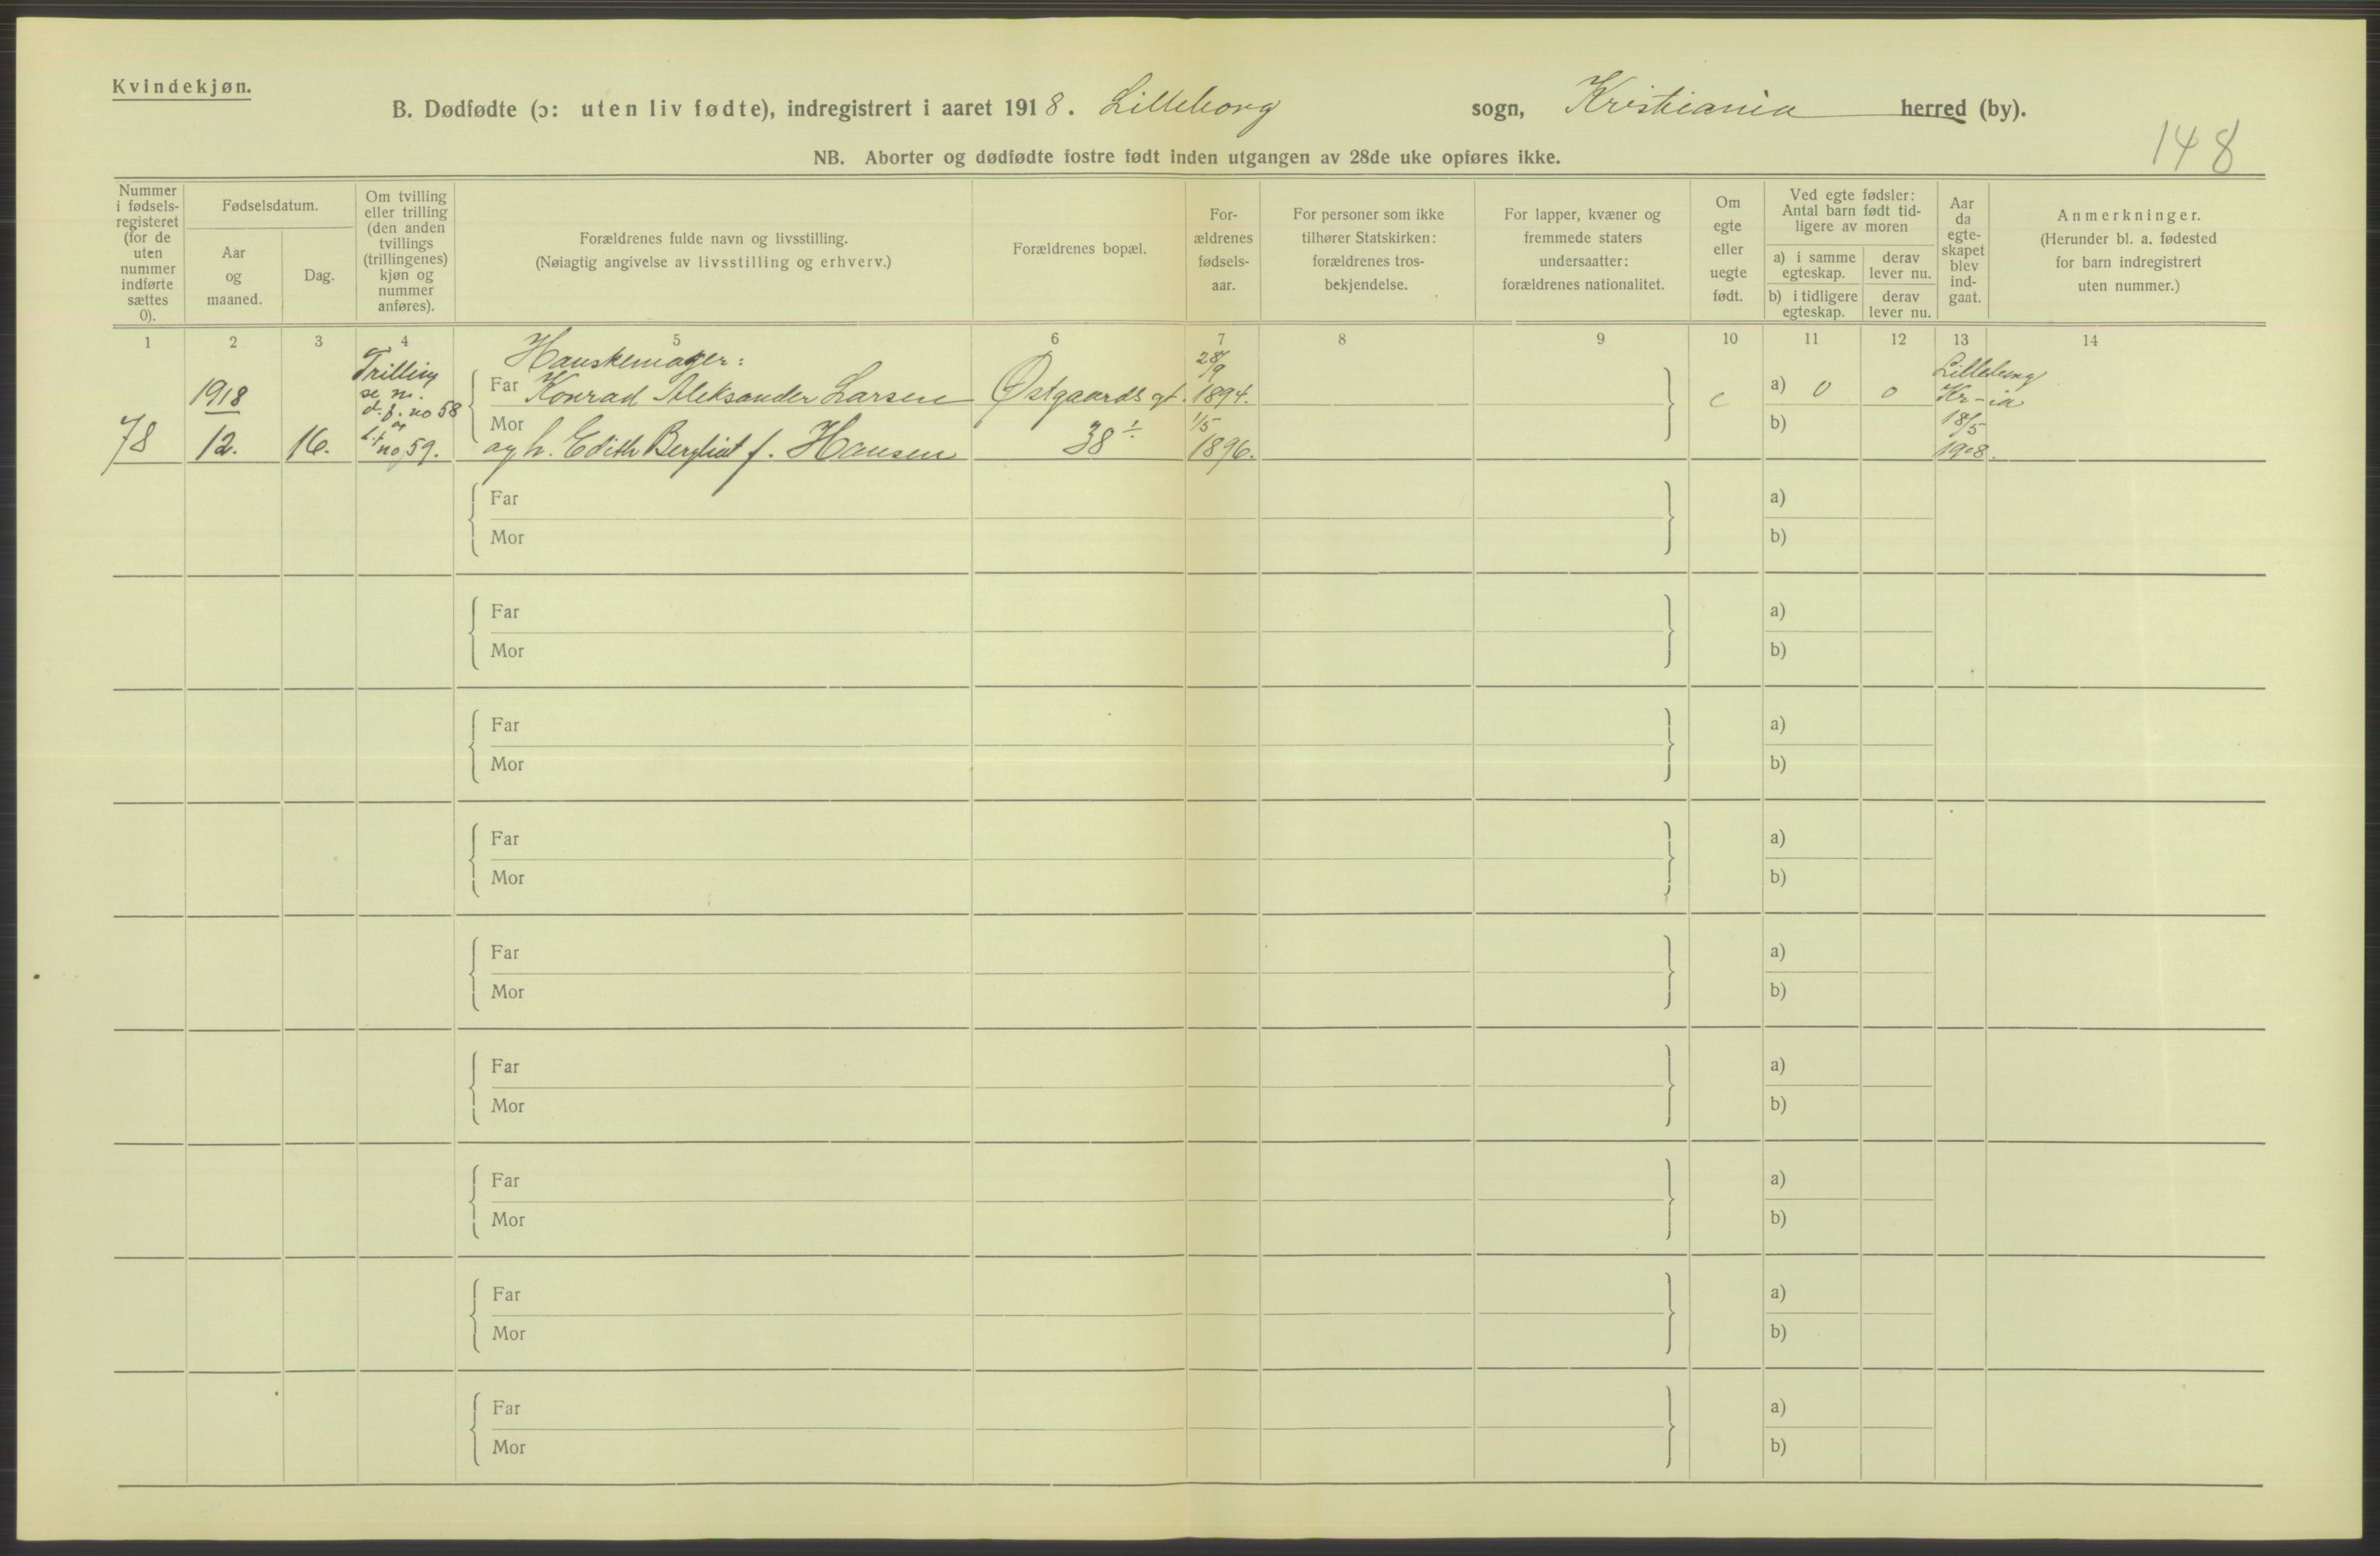 Kvindekjøn.
B. Dødfødte (ɔ: uten liv fødte), indregistrert i aaret 1918. Lilleborg sogn, Kristiania herred (by).
148
NB. Aborter og dødfødte fostre født inden utgangen av 28de uke opføres ikke.
Nummer i fødsels-registeret (for de uten nummer indførte sættes 0).
Fødselsdatum.
Aar og maaned.
Dag.
Om tvilling eller trilling (den anden tvillings (trillingenes) kjøn og nummer anføres).
Forældrenes fulde navn og livsstilling.
(Nøiagtig angivelse av livsstilling og erhverv.)
Forældrenes bopæl.
For-ældrenes fødsels-aar.
For personer som ikke tilhører Statskirken: forældrenes tros-bekjendelse.
For lapper, kvæner og fremmede staters undersaatter: forældrenes nationalitet.
Om egte eller uegte født.
Ved egte fødsler: Antal barn født tid-ligere av moren
a) i samme egteskap.
derav lever nu.
b) i tidligere egteskap.
derav lever nu.
Aar da egte-skapet blev ind-gaat.
Anmerkninger.
(Herunder bl. a. fødested for barn indregistrert uten nummer.)
1 2 3 4 5 6 7 8 9 10 11 12 13 14
78
1918
12.
16.
Trilling
se m.
d.f. no 58
og
no 59.
Hanskemager:
Far Konrad Aleksander Larsen
Mor
og h. Edith Bergliot f. Hansen
Østgaards gt.
38
28/9
1894.
1/5
1896.
a) 0 0
b)
Lilleborg
Kr-ia
18/5
1908.
Far a)
Mor b)
Far a)
Mor b)
Far a)
Mor b)
Far a)
Mor b)
Far a)
Mor b)
Far a)
Mor b)
Far a)
Mor b)
Far a)
Mor b)
Far a)
Mor b)